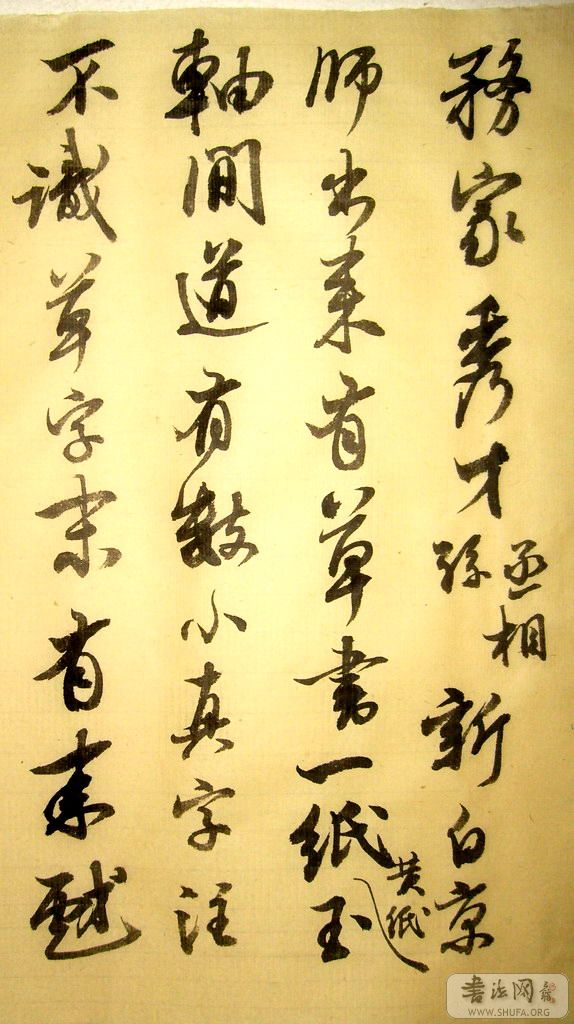 務家秀才丞相孫新自京
師出来有草書一紙黄紙玉
軸間道有數小真字注
不識草字末有来戲
書法网
WWW.SHUFA.ORG